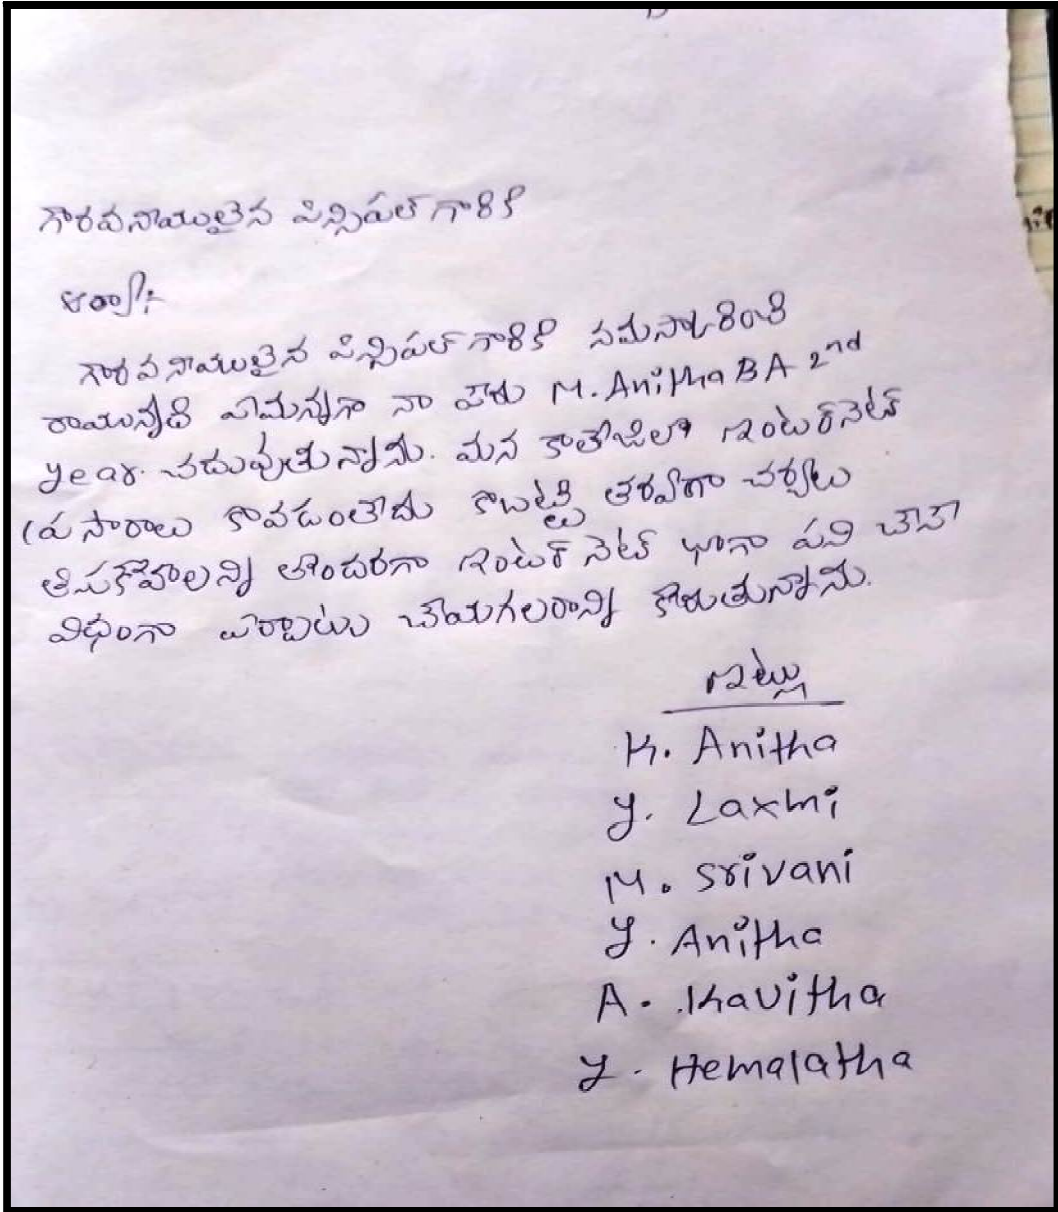 గౌరవనీయులైన పిన్సిపల్ గారికి
ఆర్యా:
గౌరవనీయులైన పిన్సిపల్ గారికి నమస్కరించి
రాయునృది ఏమనగా నా పేరు M. Anitha BA 2nd
year. చదువుతున్నాను. మన కాలేజిలో ఇంటర్‌నెట్
ప్రసారాలు కావడంలేదు కాబట్టి త్వరగా చర్యలు
తీసుకోవాలన్ని తొందరగా ఇంటర్ నెట్ భాగా పని చేసే
విధంగా ఏర్పాటు చేయగలరాన్ని కోరుతున్నాను.
ఇట్లు
K. Anitha
Y. Laxmi
M. Srivani
Y. Anitha
A. Kavitha
Y. Hemalatha